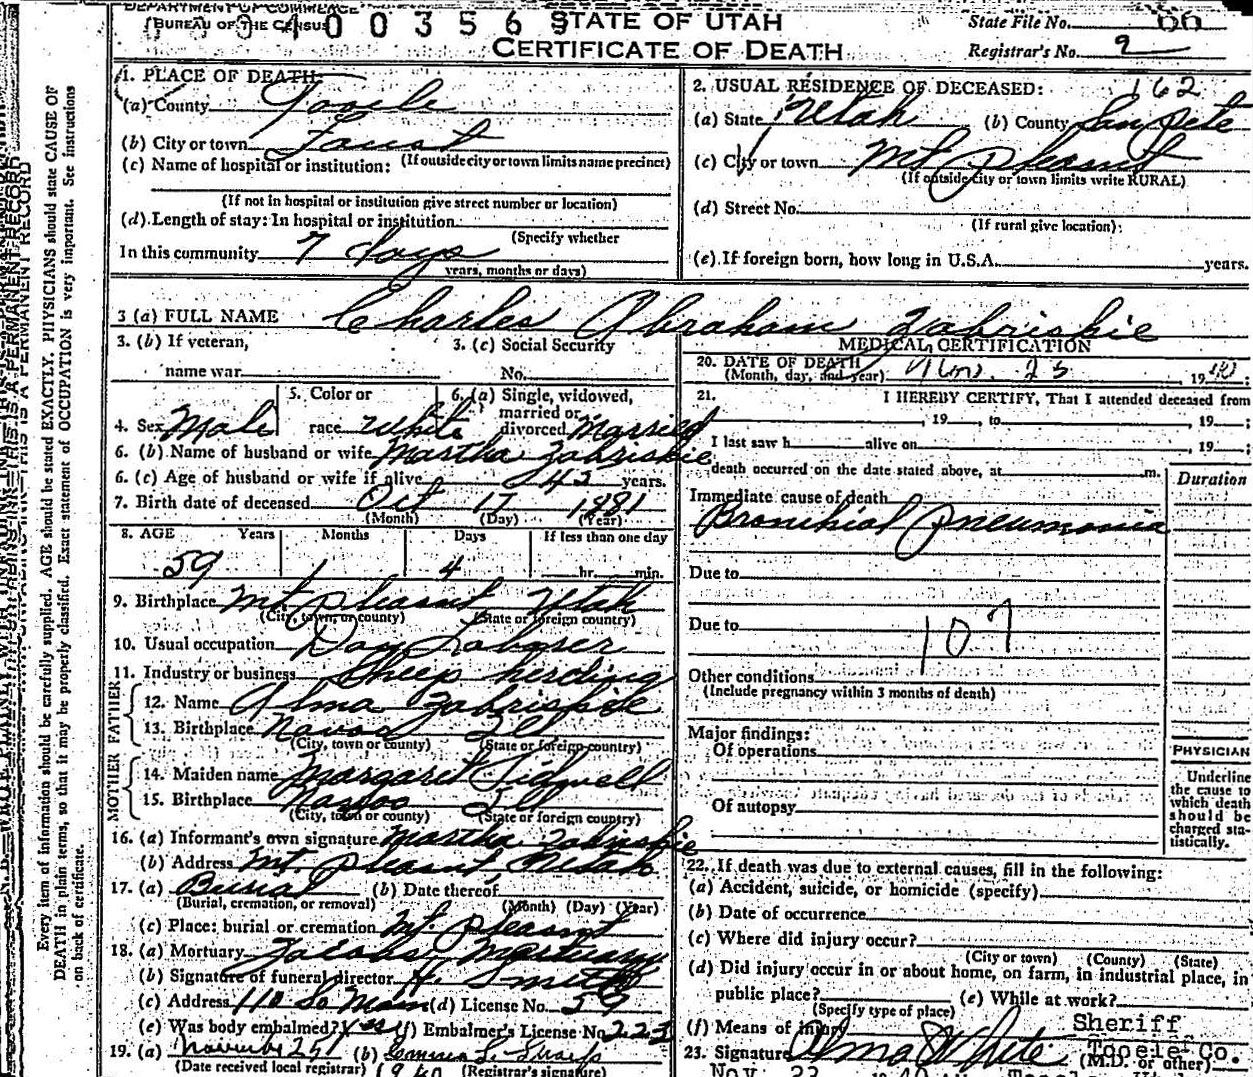 DEPARTMENT OF COMMERCE
BUREAU OF THE CENSUS
0 0 3 5 6 9
STATE OF UTAH
CERTIFICATE OF DEATH
State File No. 66
Registrar's No. 9
1. PLACE OF DEATH:
(a) County Tooele
(b) City or town Faust
(If outside city or town limits name precinct)
(c) Name of hospital or institution:
(If not in hospital or institution give street number or location)
(d) Length of stay: In hospital or institution
(Specify whether
In this community 7 days
years, months or days)
2. USUAL RESIDENCE OF DECEASED: 162
(a) State Utah (b) County San Pete
(c) City or town Mt Pleasant
(If outside city or town limits write RURAL)
(d) Street No.
(If rural give location)
(e) If foreign born, how long in U.S.A. years.
3 (a) FULL NAME Charles Abraham Zabriskie
3. (b) If veteran, name war
3. (c) Social Security No.
4. Sex Male
5. Color or race White
6. (a) Single, widowed, married or divorced Married
6. (b) Name of husband or wife Martha Zabriskie
6. (c) Age of husband or wife if alive 42 years.
7. Birth date of deceased Oct 17 1881
(Month) (Day) (Year)
8. AGE Years Months Days If less than one day
59 1 4 hr. min.
9. Birthplace Mt Pleasant Utah
(City, town, or county) (State or foreign country)
10. Usual occupation Day Laborer
11. Industry or business Sheep herding
FATHER
12. Name Alma Zabriskie
13. Birthplace Navoo Ill
(City, town or county) (State or foreign country)
MOTHER
14. Maiden name Margaret Tidwell
15. Birthplace Navoo Ill
(City, town or county) (State or foreign country)
16. (a) Informant's own signature Martha Zabriskie
(b) Address Mt. Pleasant Utah
17. (a) Burial (b) Date thereof
(Burial, cremation, or removal) (Month) (Day) (Year)
(c) Place: burial or cremation Mt. Pleasant
18. (a) Mortuary Jacobs Mortuary
(b) Signature of funeral director H. Smith
(c) Address 110 So Main (d) License No. 59
(e) Was body embalmed? Yes (f) Embalmer's License No. 223
19. (a) November 25 (b)
(Date received local registrar) 1940 (Registrar's signature)
MEDICAL CERTIFICATION
20. DATE OF DEATH
(Month, day, and year) Nov. 23 1940
21. I HEREBY CERTIFY, That I attended deceased from
, 19 , to , 19 ;
I last saw h alive on , 19 ;
death occurred on the date stated above, at m.
Duration
Immediate cause of death
Bronchial pneumonia
Due to
Due to 107
Other conditions
(Include pregnancy within 3 months of death)
Major findings:
Of operations
Of autopsy
PHYSICIAN
Underline
the cause to
which death
should be
charged sta-
tistically.
22. If death was due to external causes, fill in the following:
(a) Accident, suicide, or homicide (specify)
(b) Date of occurrence
(c) Where did injury occur?
(City or town) (County) (State)
(d) Did injury occur in or about home, on farm, in industrial place, in
public place? (e) While at work?
(Specify type of place)
(f) Means of injury Sheriff
23. Signature Alma White Tooele Co.
(M.D. or other)
Nov 23
Every item of information should be carefully supplied. AGE should be stated EXACTLY. PHYSICIANS should state CAUSE OF
DEATH in plain terms, so that it may be properly classified. Exact statement of OCCUPATION is very important. See instructions
on back of certificate.